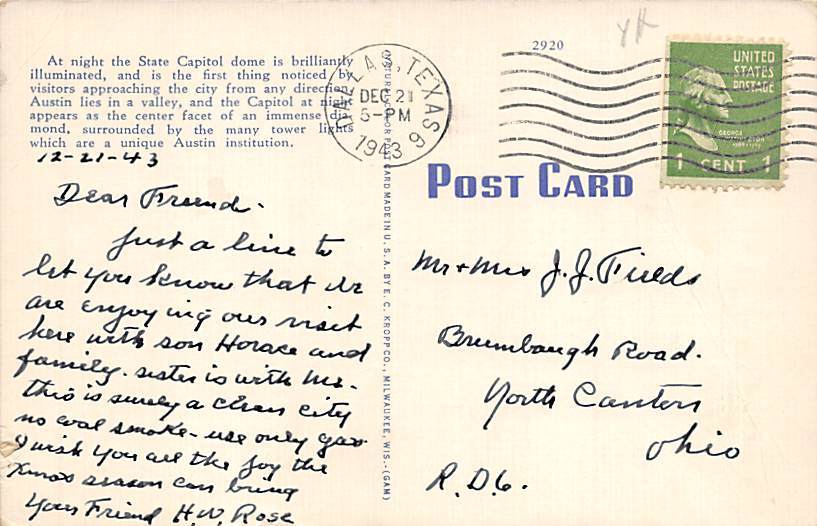 At night the State Capitol dome is brilliantly
illuminated, and is the first thing noticed by
visitors approaching the city from any direction.
Austin lies in a valley, and the Capitol at night
appears as the center facet of an immense dia-
mond, surrounded by the many tower lights
which are a unique Austin institution.
12-21-43
Dear Freend-
Just a line to
let you know that we
are enjoying our visit
here with son Horace and
family. sister is with me-
this is surely a clean city
no coal smoke- use only gas
I wish you all the joy the
Xmas season can bring
Your Friend H.W. Rose
DALLAS, TEXAS 9
DEC 21
5-PM
1943
COLOR POST CARD MADE IN U. S. A. BY E. C. KROPP CO., MILWAUKEE, WIS.-(GAM)
2920
UNITED
STATES
POSTAGE
GEORGE
WASHINGTON
1 CENT 1
POST CARD
Mr + Mrs J. J. Fields
Brumbaugh Road.
North Canton
Ohio
R.D.6.